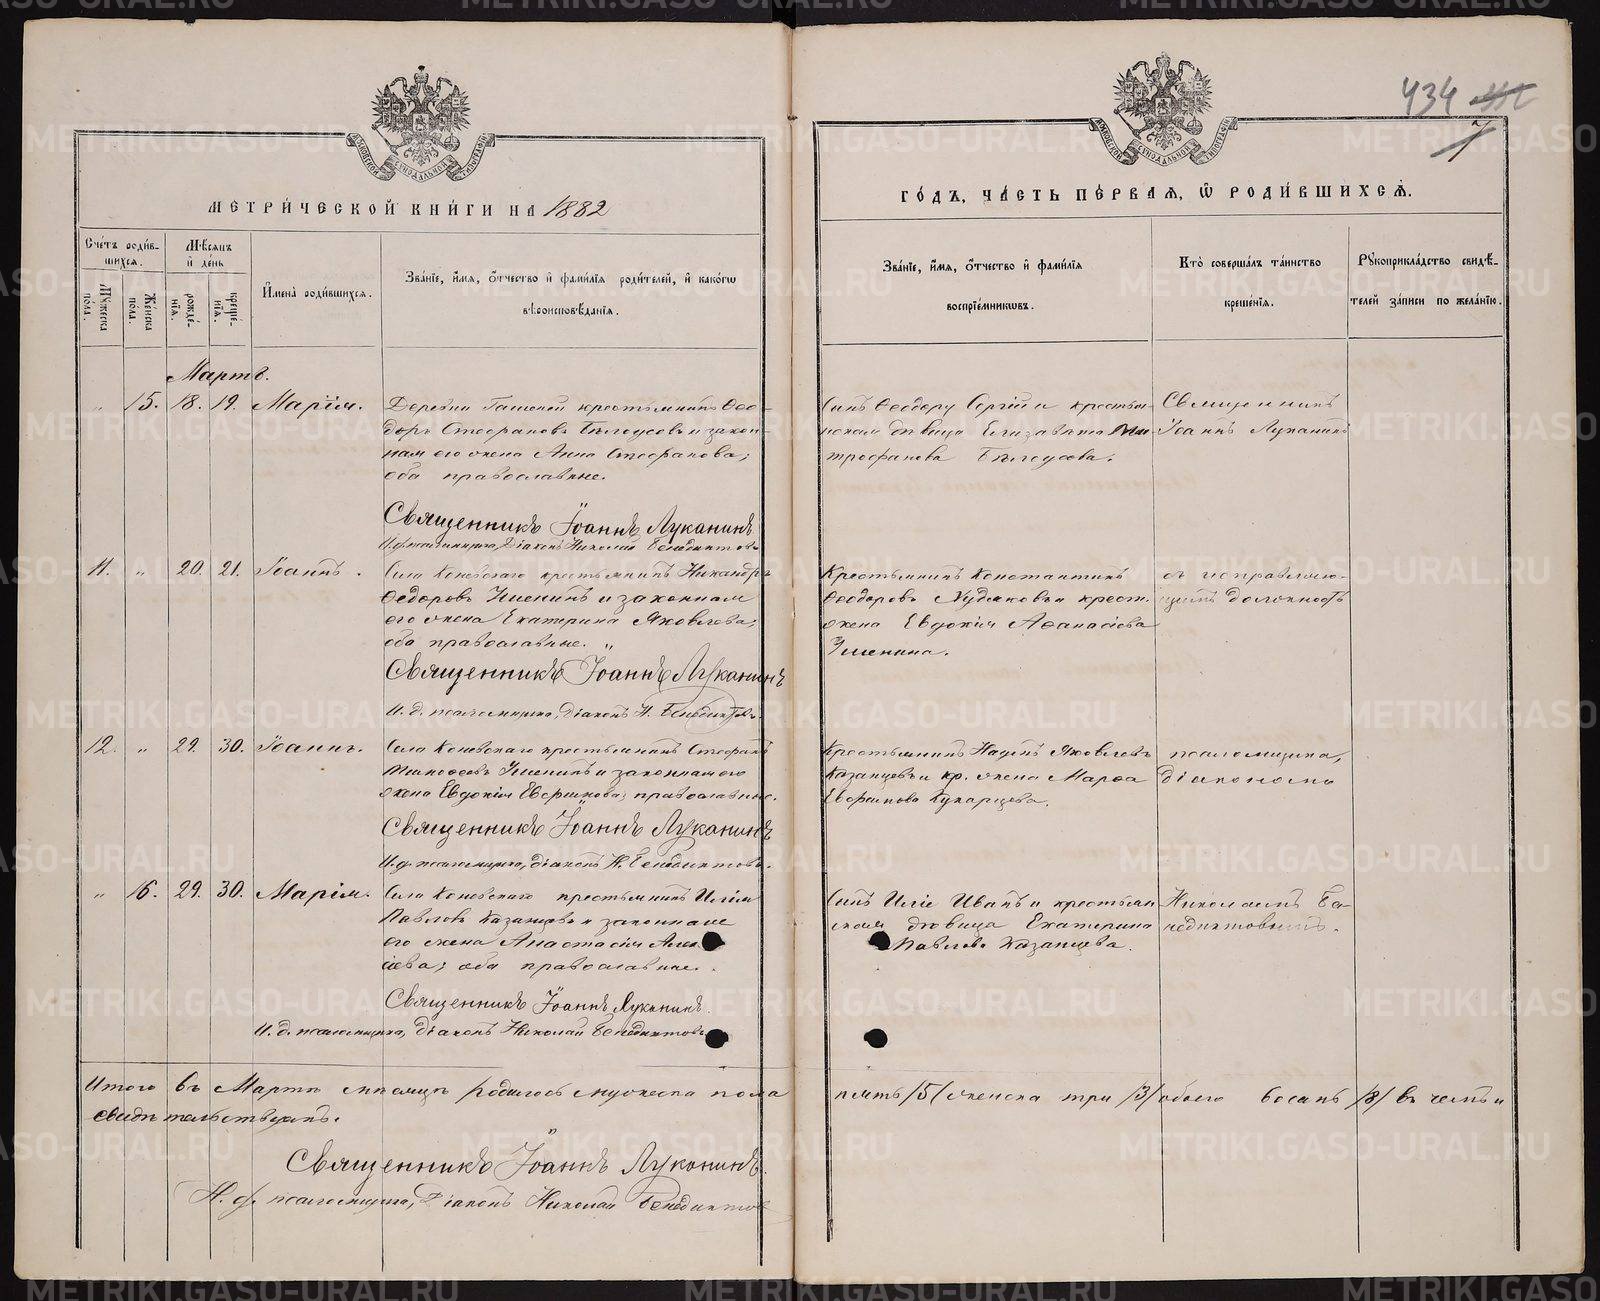 434
7
МЕТРИ́ЧЕСКОЙ КНИ́ГИ НА 1882
ГО́ДЪ, ЧА́СТЬ ПЕ́РВАЯ, Ѡ҆ РОДИ́ВШИХСѦ.
Сче́тъ роди́в-
шихсѧ.
Мѣ́сѧцъ
и҆ де́нь
Мꙋ́жеска
по́ла.
Же́нска
по́ла.
рожде́-
нїѧ.
креще́-
нїѧ.
И҆мена̀ роди́вшихсѧ.
Зва́нїе, и҆́мѧ, ѻ҆́тчество и҆ фами́лїѧ роди́телей, и҆ како́гѡ
вѣроисповѣ́данїѧ.
Зва́нїе, и҆́мѧ, ѻ҆́тчество и҆ фами́лїѧ
воспрїе́мникѡвъ.
Кто̀ соверша́лъ та́инство
креще́нїѧ.
Рꙋкоприкла́дство свидѣ́-
телей за́писи по жела́нїю.
Мартъ.
" 15. 18. 19. Марія.
Деревни крестьянинъ Ѳео-
доръ Стефановъ Бѣлоусовъ и закон-
ная его жена Анна Стефанова;
оба православные.
Священникъ Іоаннъ Луканинъ
И. д. псаломщика, Діаконъ Николай Бенедиктовъ
Сынъ Ѳеодору Сергій и крестьян-
ская дѣвица Елизавета Ми-
трофанова Бѣлоусова.
Священникъ
Іоаннъ Луканинъ
11. " 20. 21. Іоаннъ.
Села Коневскаго крестьянинъ Никандръ
Ѳедоровъ и законная
его жена Екатерина Яковлева;
оба православные.
Священникъ Іоаннъ Луканинъ
И. д. псаломщика, Діаконъ Н. Бенедиктовъ.
Крестьянинъ Константинъ
Ѳеодоровъ Худяковъ и крест.
жена Евдокія Аѳанасіева
съ исправляю-
щимъ должность
12. " 29. 30. Іоаннъ.
Села Коневскаго крестьянинъ Стефанъ
и законная его
жена Евдокія православные.
Священникъ Іоаннъ Луканинъ
И. д. псаломщика, діаконъ Н. Бенедиктовъ.
Крестьянинъ Яковлевъ
Казанцевъ и кр. жена Марѳа
псаломщика,
діакономъ
" 16. 29. 30. Марія.
Села Коневскаго крестьянинъ Илія
Павловъ Казанцевъ и законная
его жена Анастасія Алек
сіева; оба православные.
Священникъ Іоаннъ Луканинъ.
И. д. псаломщика, діаконъ Николай Бенедиктовъ
Сынъ Иліе Иванъ и крестьян
ская дѣвица Екатерина
Павлова Казанцева.
Николаемъ Бе-
недиктовымъ.
Итого въ Мартѣ мѣсяцѣ родилось мужеска пола
пять /5/ женска три /3/ обоего восемь /8/ въ чемъ и
свидѣтельствуемъ.
Священникъ Іоаннъ Луканинъ.
И. д. псаломщика, Діаконъ Николай Бенедиктовъ